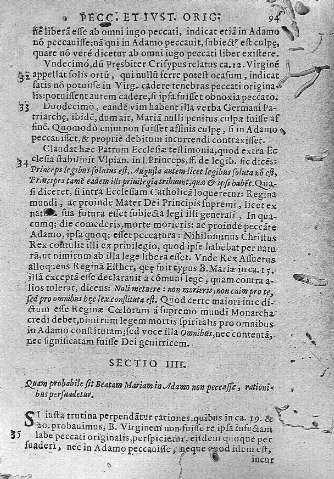 PECC. ET IUST. ORIG. 94
se liberâ esse ab omni iugo peccati, indicat etiā in Adamo
nō peccauisse: nā qui in Adamo peccauit, subiectº est culpę,
quare nō verè dicetur ab omni iugo peccati liber existere.
Vndecimò, dū Presbiter Crisypus relatus ca. 12. Virginē
33 appellat solis ortū, qui nullū ferre potest occasum, indicat
satis nō potuisse in Virg. cadere tenebras peccati origina-
lis: potuisset autē eū cadere, si ipsa fuisset obnoxia peccato.
Duodecimò, eandē vim habent illa verba Germani Pa-
triarchę, ibidē, dum ait, Mariā nulli penitus culpæ fuisse af-
finē. Quomodò enim non fuisset affinis culpę, si in Adamo
peccauisset, & propriè debitum incurrendi contraxisset.
Claudat hæc Patrum Ecclesiæ testimonia, quod exera Ec
34 clesia stabiliuit Vlpian. in l. Princeps, ff. de legib. sic dicēs:
Princeps legibus solutus est, Augusta autem licet legibus soluta nō est,
Principes tamē eadem illi priuilegia tribuunt, quæ & ipsi habēt. Qua-
si diceret, si intra Ecclesiam Catholicā loqueretur: Regina
mundi, ac proinde Mater Dei Principis supremi, licet ex
sua futura esset subiecta legi illi generali, In qua-
cumq; die comederis, morte morieris: ac proinde peccare
Adamo, ipsa quoq; esset peccatura: Nihilominus Christus
Rex cōstulit illi ex priuilegio, quod ipse habebat per natu
rā, ut nimirum ab illa lege libera esset. Vnde Rex Assuerus
alloquens Regina Esther, quę fuit typus B. Mariæ in ca. 15.
illā exceptā esse declarauit à cōmuni lege, quam contra a-
lios tulerat, dicens: Noli metuere: non morieris, non enim pro te,
sed pro omnibus hęc lex constituta est. Quod certè maiori iure dic-
tum esse Reginæ Cœlorum à supremo mundi Monarcha
credi debet, nimirum legem mortis spiritalis pro omnibus
in Adamo constitutam, sed voce illa Omnibus, nec contentā,
nec significatam fuisse Dei genitricem.
SECTIO IIII.
Quam probabile sit Beatam Mariam in Adamo non peccasse, rationi-
bus persuadetur.
35 SI iusta trutina perpendātur rationes, quibus in ca. 19. &
20. probauimus, B. Virginem non fuisse re ipsa infectam
labe peccati originalis, perspicietur, eisdem quoque per
suaderi, nec in Adamo peccauisse, neque quod idem est,
incur